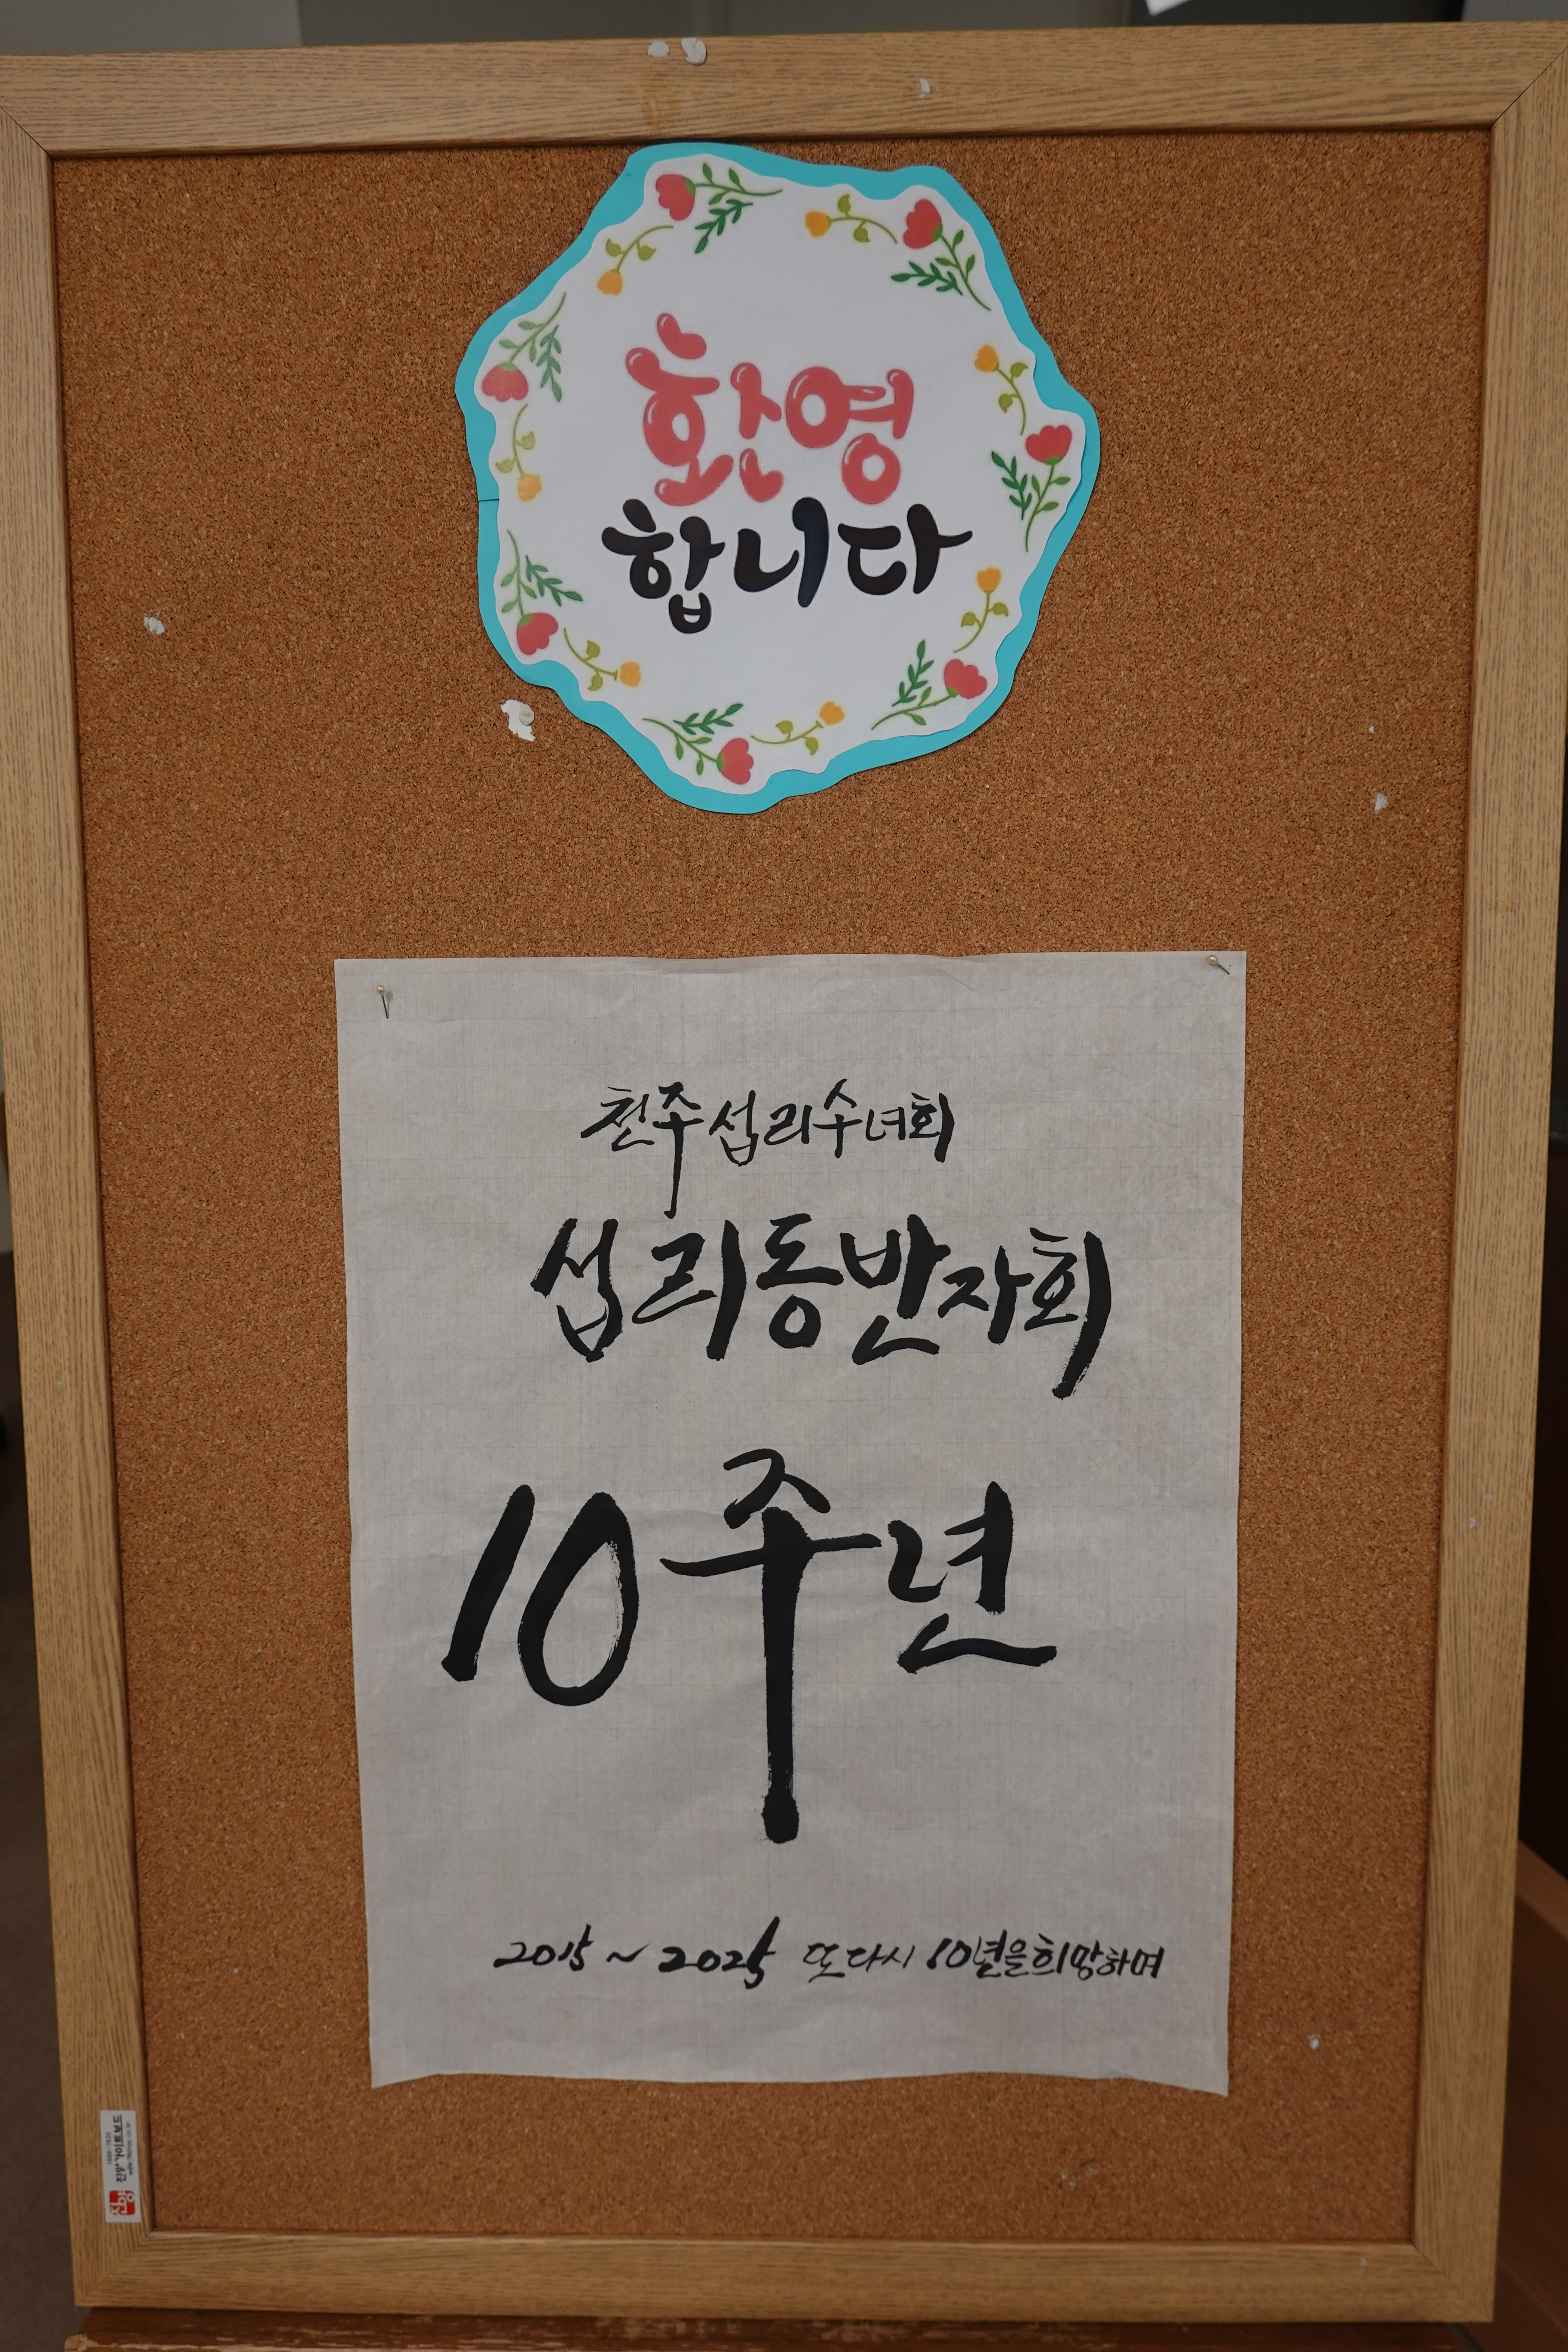 환영
합니다
천주섭리수녀회
섭리동반자회
10주년
2015 ~ 2025 또다시 10년을 희망하며